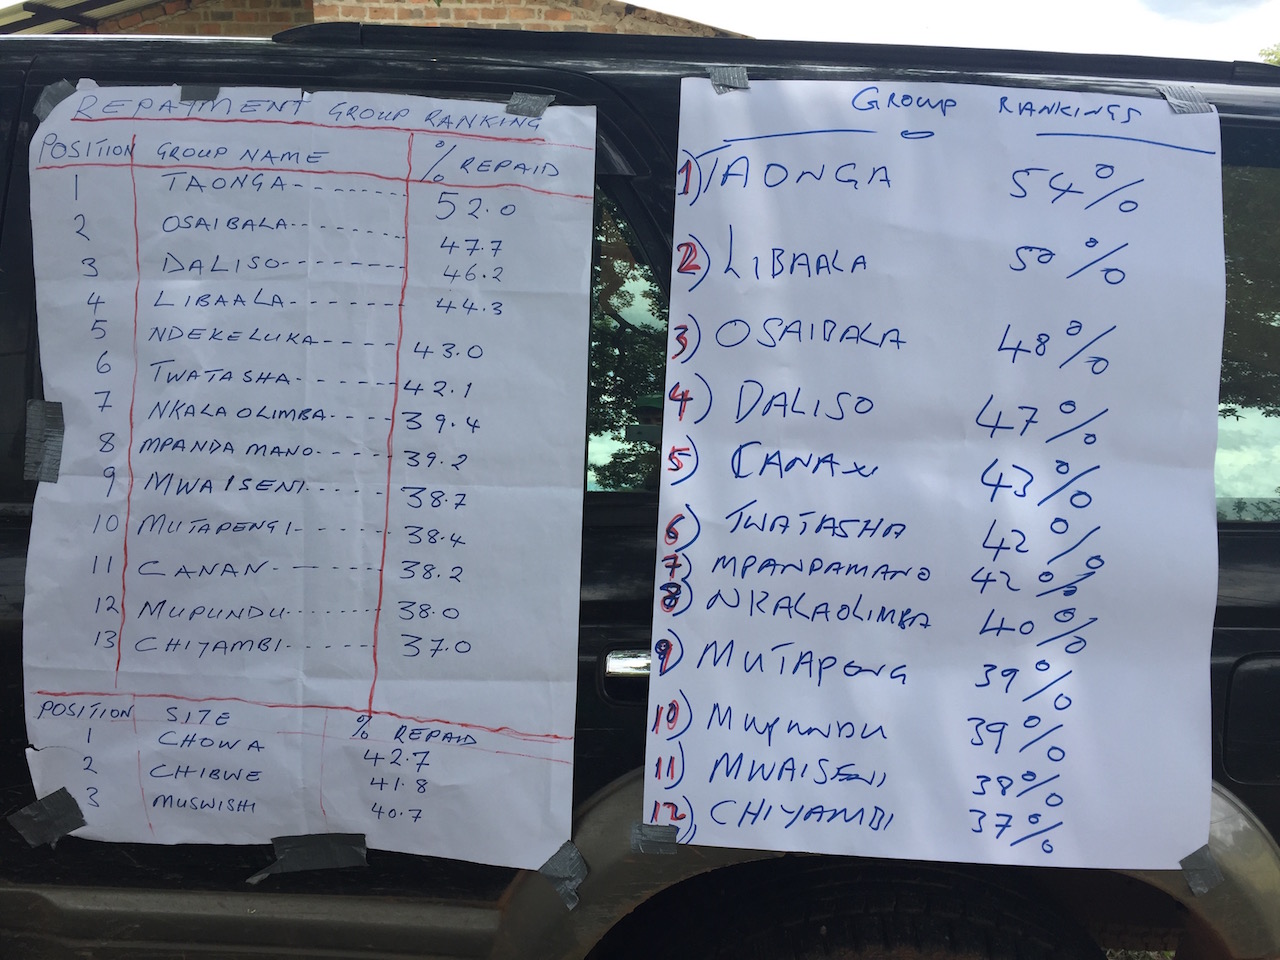 REPAYMENT GROUP RANKING
POSITION GROUP NAME % REPAID
1 TAONGA 52.0
2 OSAIBALA 47.7
3 DALISO 46.2
4 LIBAALA 44.3
5 NDEKELUKA 43.0
6 TWATASHA 42.1
7 NKALAOLIMBA 39.4
8 MPANDAMANO 39.2
9 MWAISENI 38.7
10 MUTAPENGI 38.4
11 CANAN 38.2
12 MUPUNDU 38.0
13 CHIYAMBI 37.0
POSITION SITE % REPAID
1 CHOWA 42.7
2 CHIBWE 41.8
3 MUSWISHI 40.7
GROUP RANKINGS
1) TAONGA 54%
2) LIBAALA 50%
3) OSAIBALA 48%
4) DALISO 47%
5) CANAN 43%
6) TWATASHA 42%
7) MPANDAMANO 42%
8) NKALAOLIMBA 40%
9) MUTAPENG 39%
10) MUPUNDU 39%
11) MWAISENI 38%
12) CHIYAMBI 37%